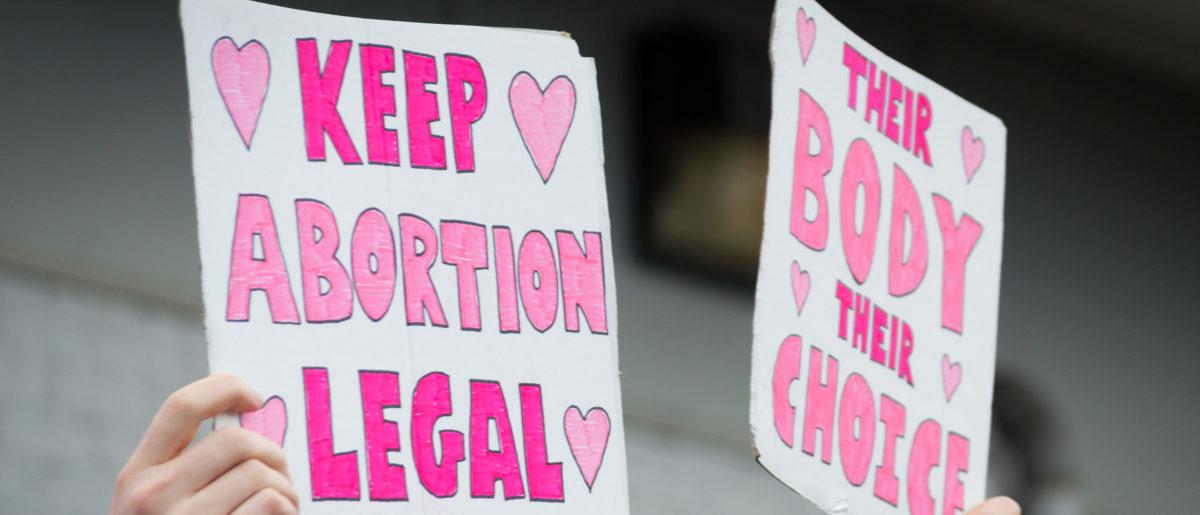 KEEP
ABORTION
LEGAL
THEIR
BODY
THEIR
CHOICE